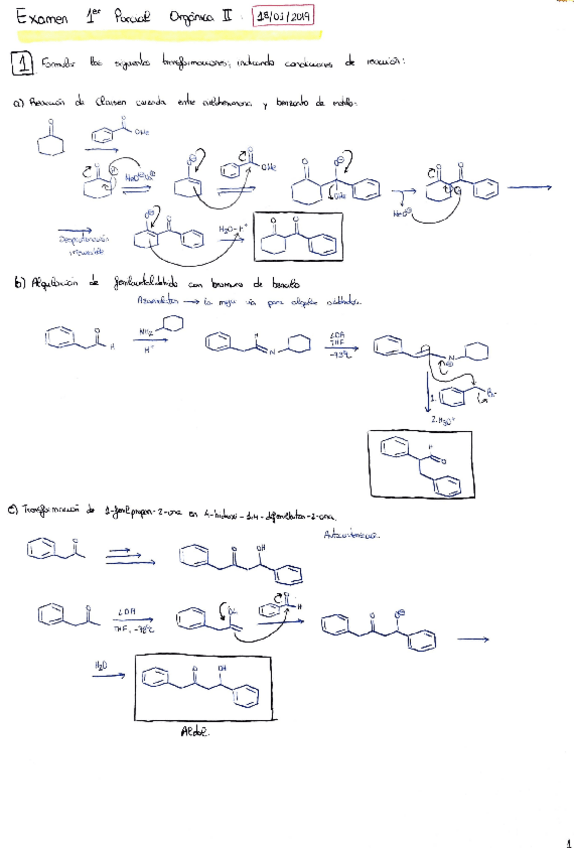 Examen 1er Parcial Orgánica II 18/03/2019
1 Formular las siguientes transformaciones, indicando condiciones de reacción:
a) Reacción de Claisen cruzada entre ciclohexanona y benzoato de metilo.
O O
OMe
O MeO⊖ O⊖ O OMe O O⊖ OMe O O
MeO⊖
Desprotonación
irreversible
O⊖ O H2O-H+ O O
b) Alquilación de fenilacetaldehído con bromuro de bencilo
Azaenolatos → la mejor vía para alquilar aldehídos.
O H NH2 H+ H N LDA THF -78ºC N
1. Br
2. H3O+
H O
c) Transformación de 1-fenilpropan-2-ona en 4-hidroxi-1,4-difenilbutan-2-ona.
O O OH
O LDA THF, -78ºC O H O O⊖
H2O O OH
Aldol.
1